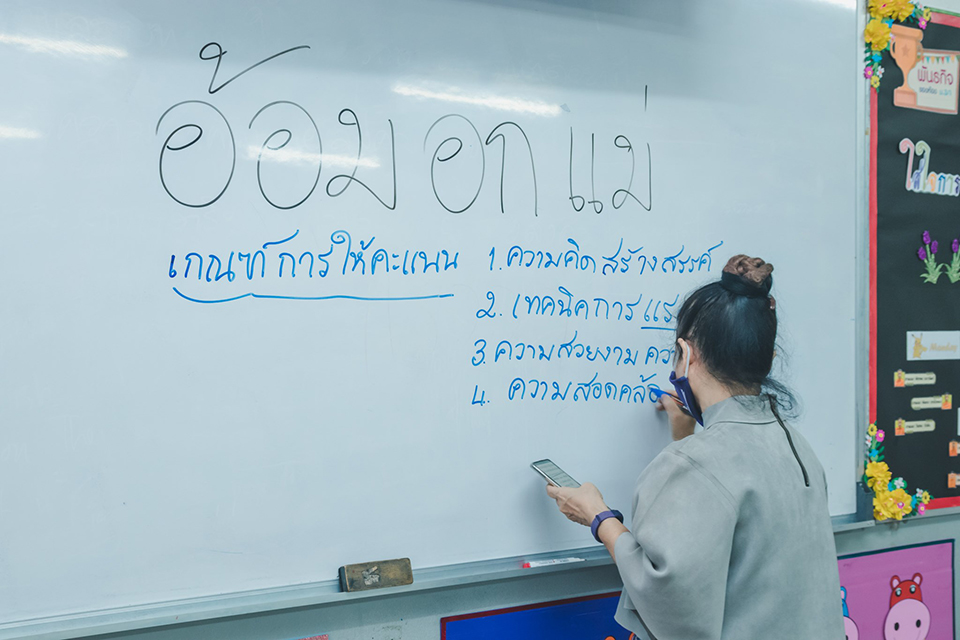 อ้อมอกแม่
เกณฑ์การให้คะแนน
1. ความคิดสร้างสรรค์
2. เทคนิคการแร
3. ความสวยงาม ควา
4. ความสอดคล้อ
พันธกิจ
ใส่ใจการ